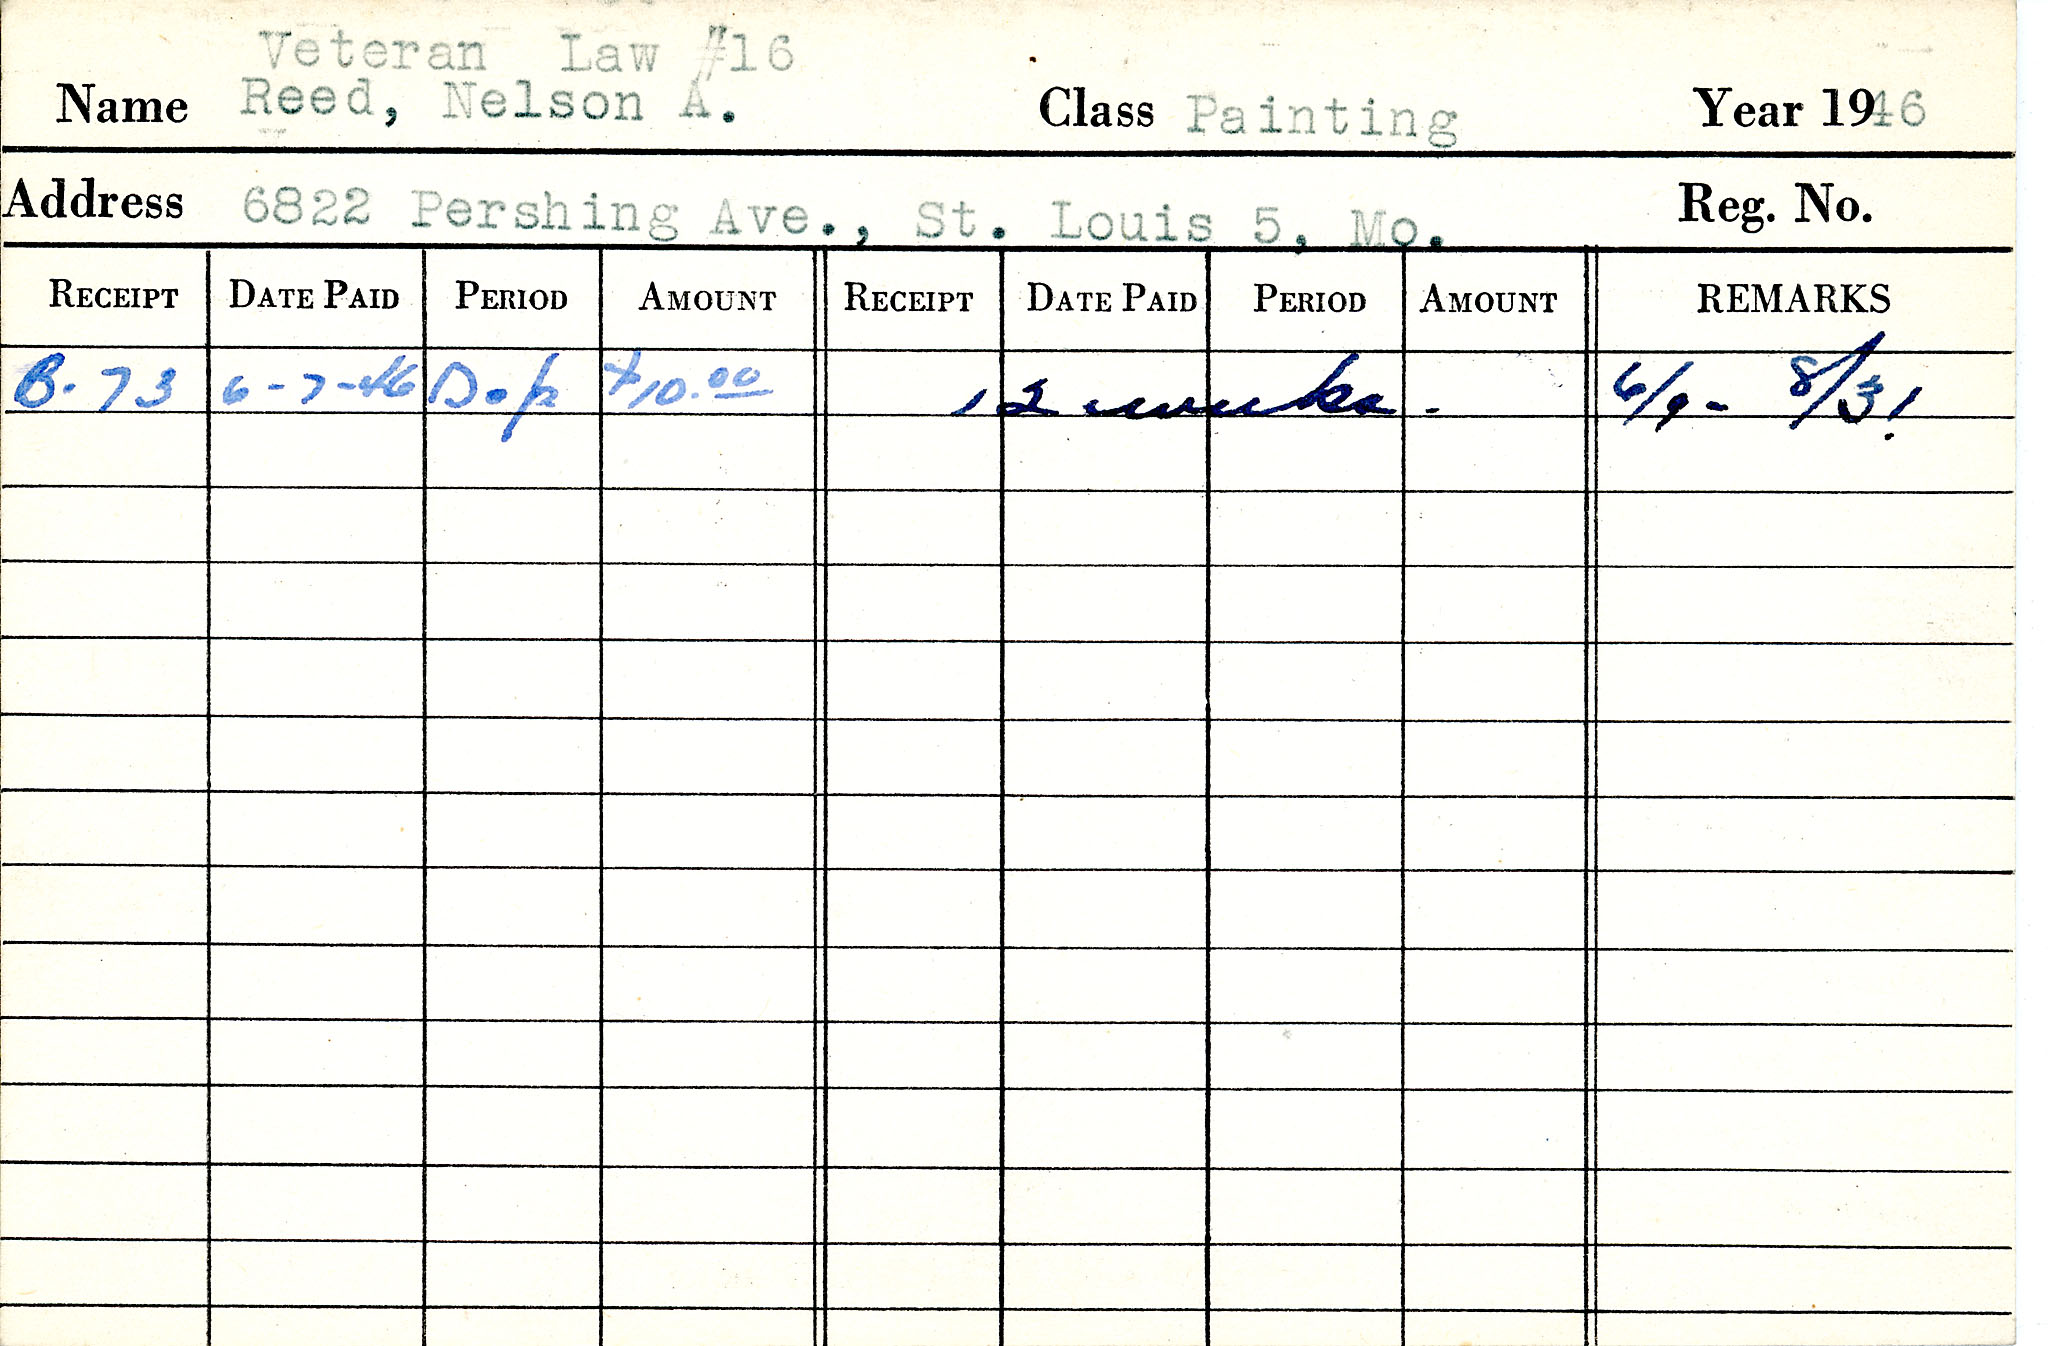 Veteran Law #16
Name Reed, Nelson A. Class Painting Year 1946
Address 6822 Pershing Ave., St. Louis 5, Mo. Reg. No.
RECEIPT DATE PAID PERIOD AMOUNT RECEIPT DATE PAID PERIOD AMOUNT REMARKS
B-73 6-7-46 Dep $10.00 12 weeks - 6/9 - 8/31